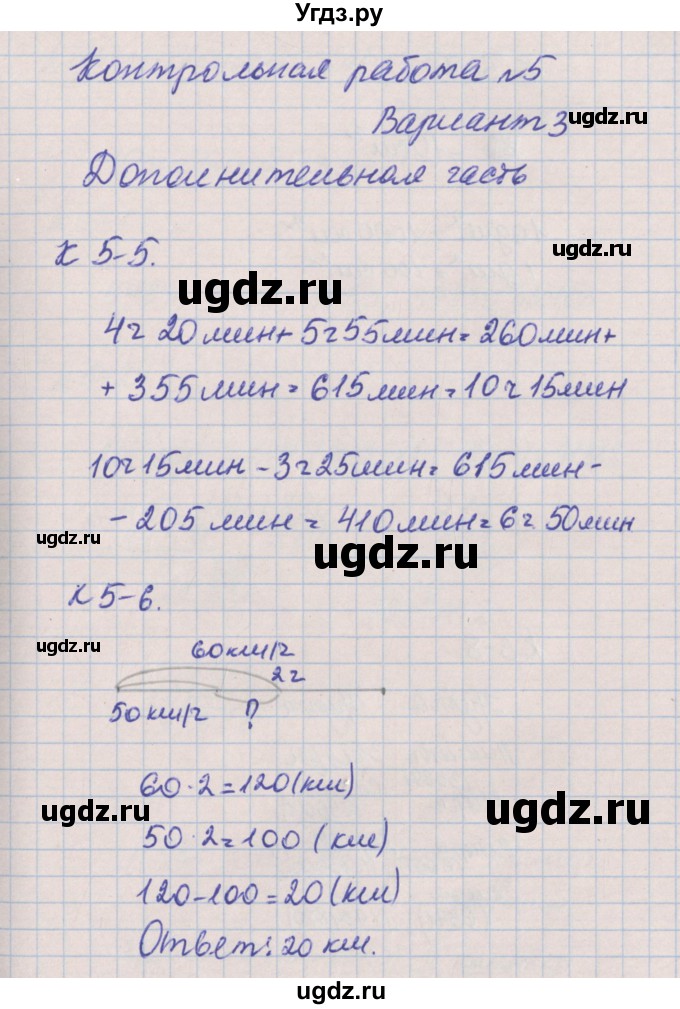 Угдз.ру
Контрольная работа №5
Вариант 3
ugdz.ru
Дополнительная часть
К 5-5.
ugdz.ru
4ч 20мин + 5ч55мин = 260мин +
+ 355мин = 615мин = 10ч 15мин
10ч15мин - 3ч25мин = 615мин -
- 205мин = 410мин = 6ч 50мин
ugdz.ru
ugdz.ru
К 5-6.
ugdz.ru
60км/ч
2ч
50км/ч ?
60·2=120(км)
ugdz.ru
ugdz.ru
50·2=100 (км)
120-100=20(км)
Ответ: 20 км.
ugdz.ru